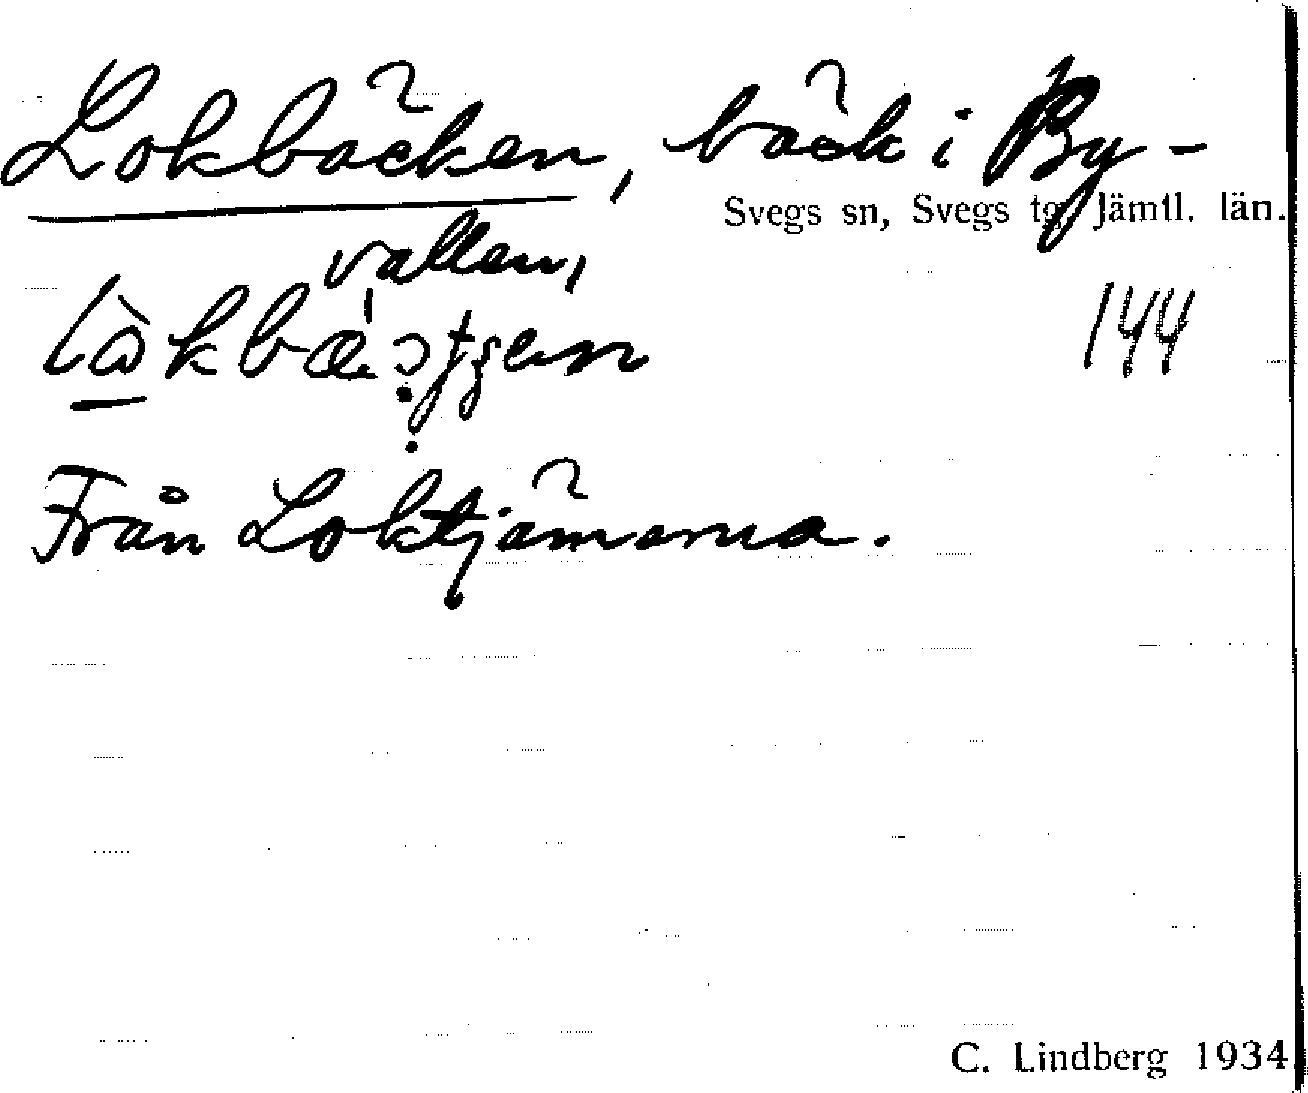 Lokbäcken, bäck i By-
Svegs sn, Svegs tg, Jämtl. län.
vallen,
144
Från Loktjärnarna.
C. Lindberg 1934